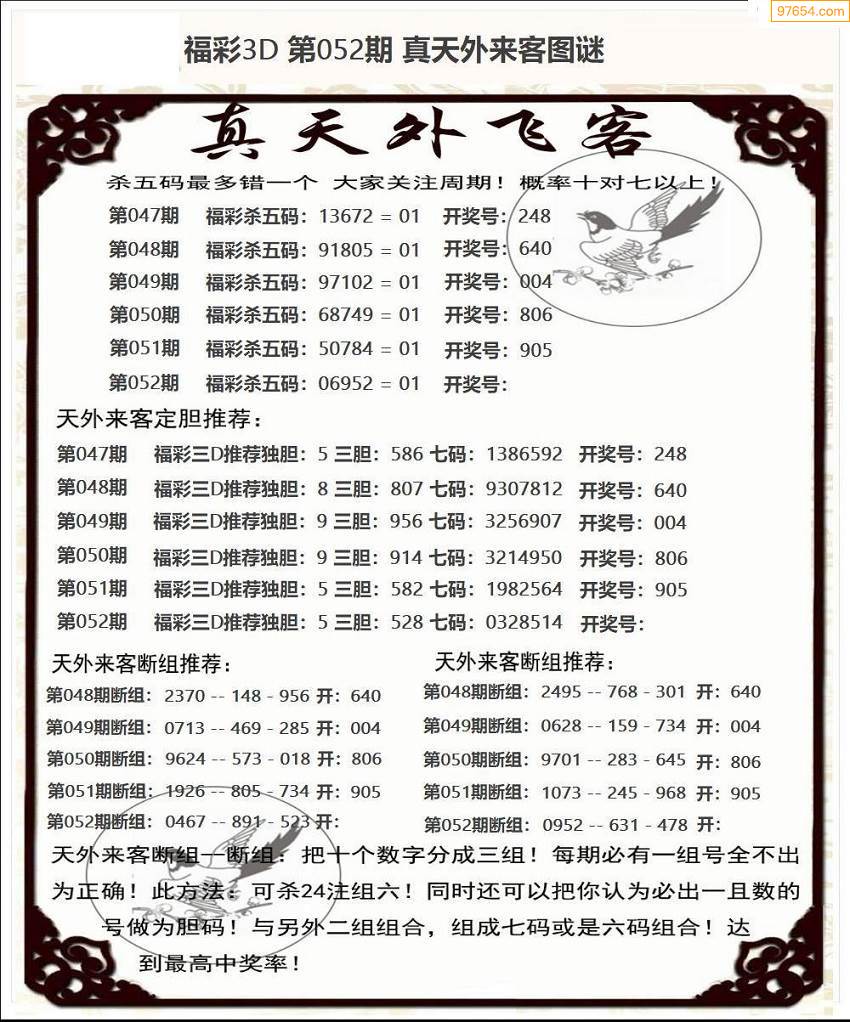 97654.com
福彩3D 第052期 真天外来客图谜
真天外飞客
杀五码最多错一个 大家关注周期！概率十对七以上！
第047期 福彩杀五码：13672 = 01 开奖号：248
第048期 福彩杀五码：91805 = 01 开奖号：640
第049期 福彩杀五码：97102 = 01 开奖号：004
第050期 福彩杀五码：68749 = 01 开奖号：806
第051期 福彩杀五码：50784 = 01 开奖号：905
第052期 福彩杀五码：06952 = 01 开奖号：
天外来客定胆推荐：
第047期 福彩三D推荐独胆：5 三胆：586 七码：1386592 开奖号：248
第048期 福彩三D推荐独胆：8 三胆：807 七码：9307812 开奖号：640
第049期 福彩三D推荐独胆：9 三胆：956 七码：3256907 开奖号：004
第050期 福彩三D推荐独胆：9 三胆：914 七码：3214950 开奖号：806
第051期 福彩三D推荐独胆：5 三胆：582 七码：1982564 开奖号：905
第052期 福彩三D推荐独胆：5 三胆：528 七码：0328514 开奖号：
天外来客断组推荐：
第048期断组：2370 -- 148 - 956 开：640
第049期断组：0713 -- 469 - 285 开：004
第050期断组：9624 -- 573 - 018 开：806
第051期断组：1926 -- 805 - 734 开：905
第052期断组：0467 -- 891 - 523 开：
天外来客断组推荐：
第048期断组：2495 -- 768 - 301 开：640
第049期断组：0628 -- 159 - 734 开：004
第050期断组：9701 -- 283 - 645 开：806
第051期断组：1073 -- 245 - 968 开：905
第052期断组：0952 -- 631 - 478 开：
天外来客断组一断组：把十个数字分成三组！每期必有一组号全不出
为正确！此方法：可杀24注组六！同时还可以把你认为必出一且数的
号做为胆码！与另外二组组合，组成七码或是六码组合！达
到最高中奖率！